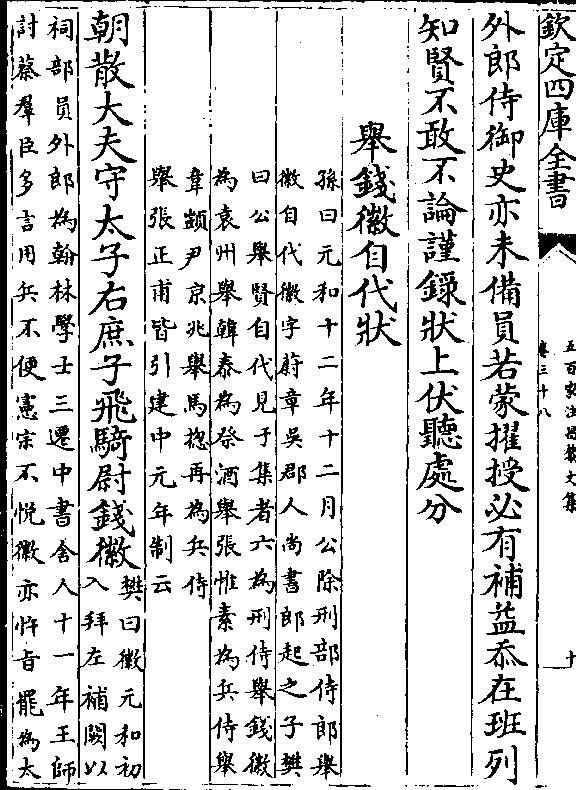 欽定四庫全書
五百家注昌黎文集
卷三十八
十
外郎侍御史亦未備員若蒙擢授必有補益忝在班列
知賢不敢不論謹錄狀上伏聽處分
舉錢徽自代狀
孫曰元和十二年十二月公除刑部侍郎舉
徽自代徽字蔚章吳郡人尚書郎起之子樊
曰公舉賢自代見于集者六為刑侍舉錢徽
為袁州舉韓泰為祭酒舉張惟素為兵侍舉
韋顗尹京兆舉馬揔再為兵侍
舉張正甫皆引建中元年制云
朝散大夫守太子右庶子飛騎尉錢徽
樊曰徽元和初
入拜左補闕以
祠部員外郎為翰林學士三遷中書舍人十一年王師
討蔡羣臣多言用兵不便憲宗不悅徽亦忤旨罷為太